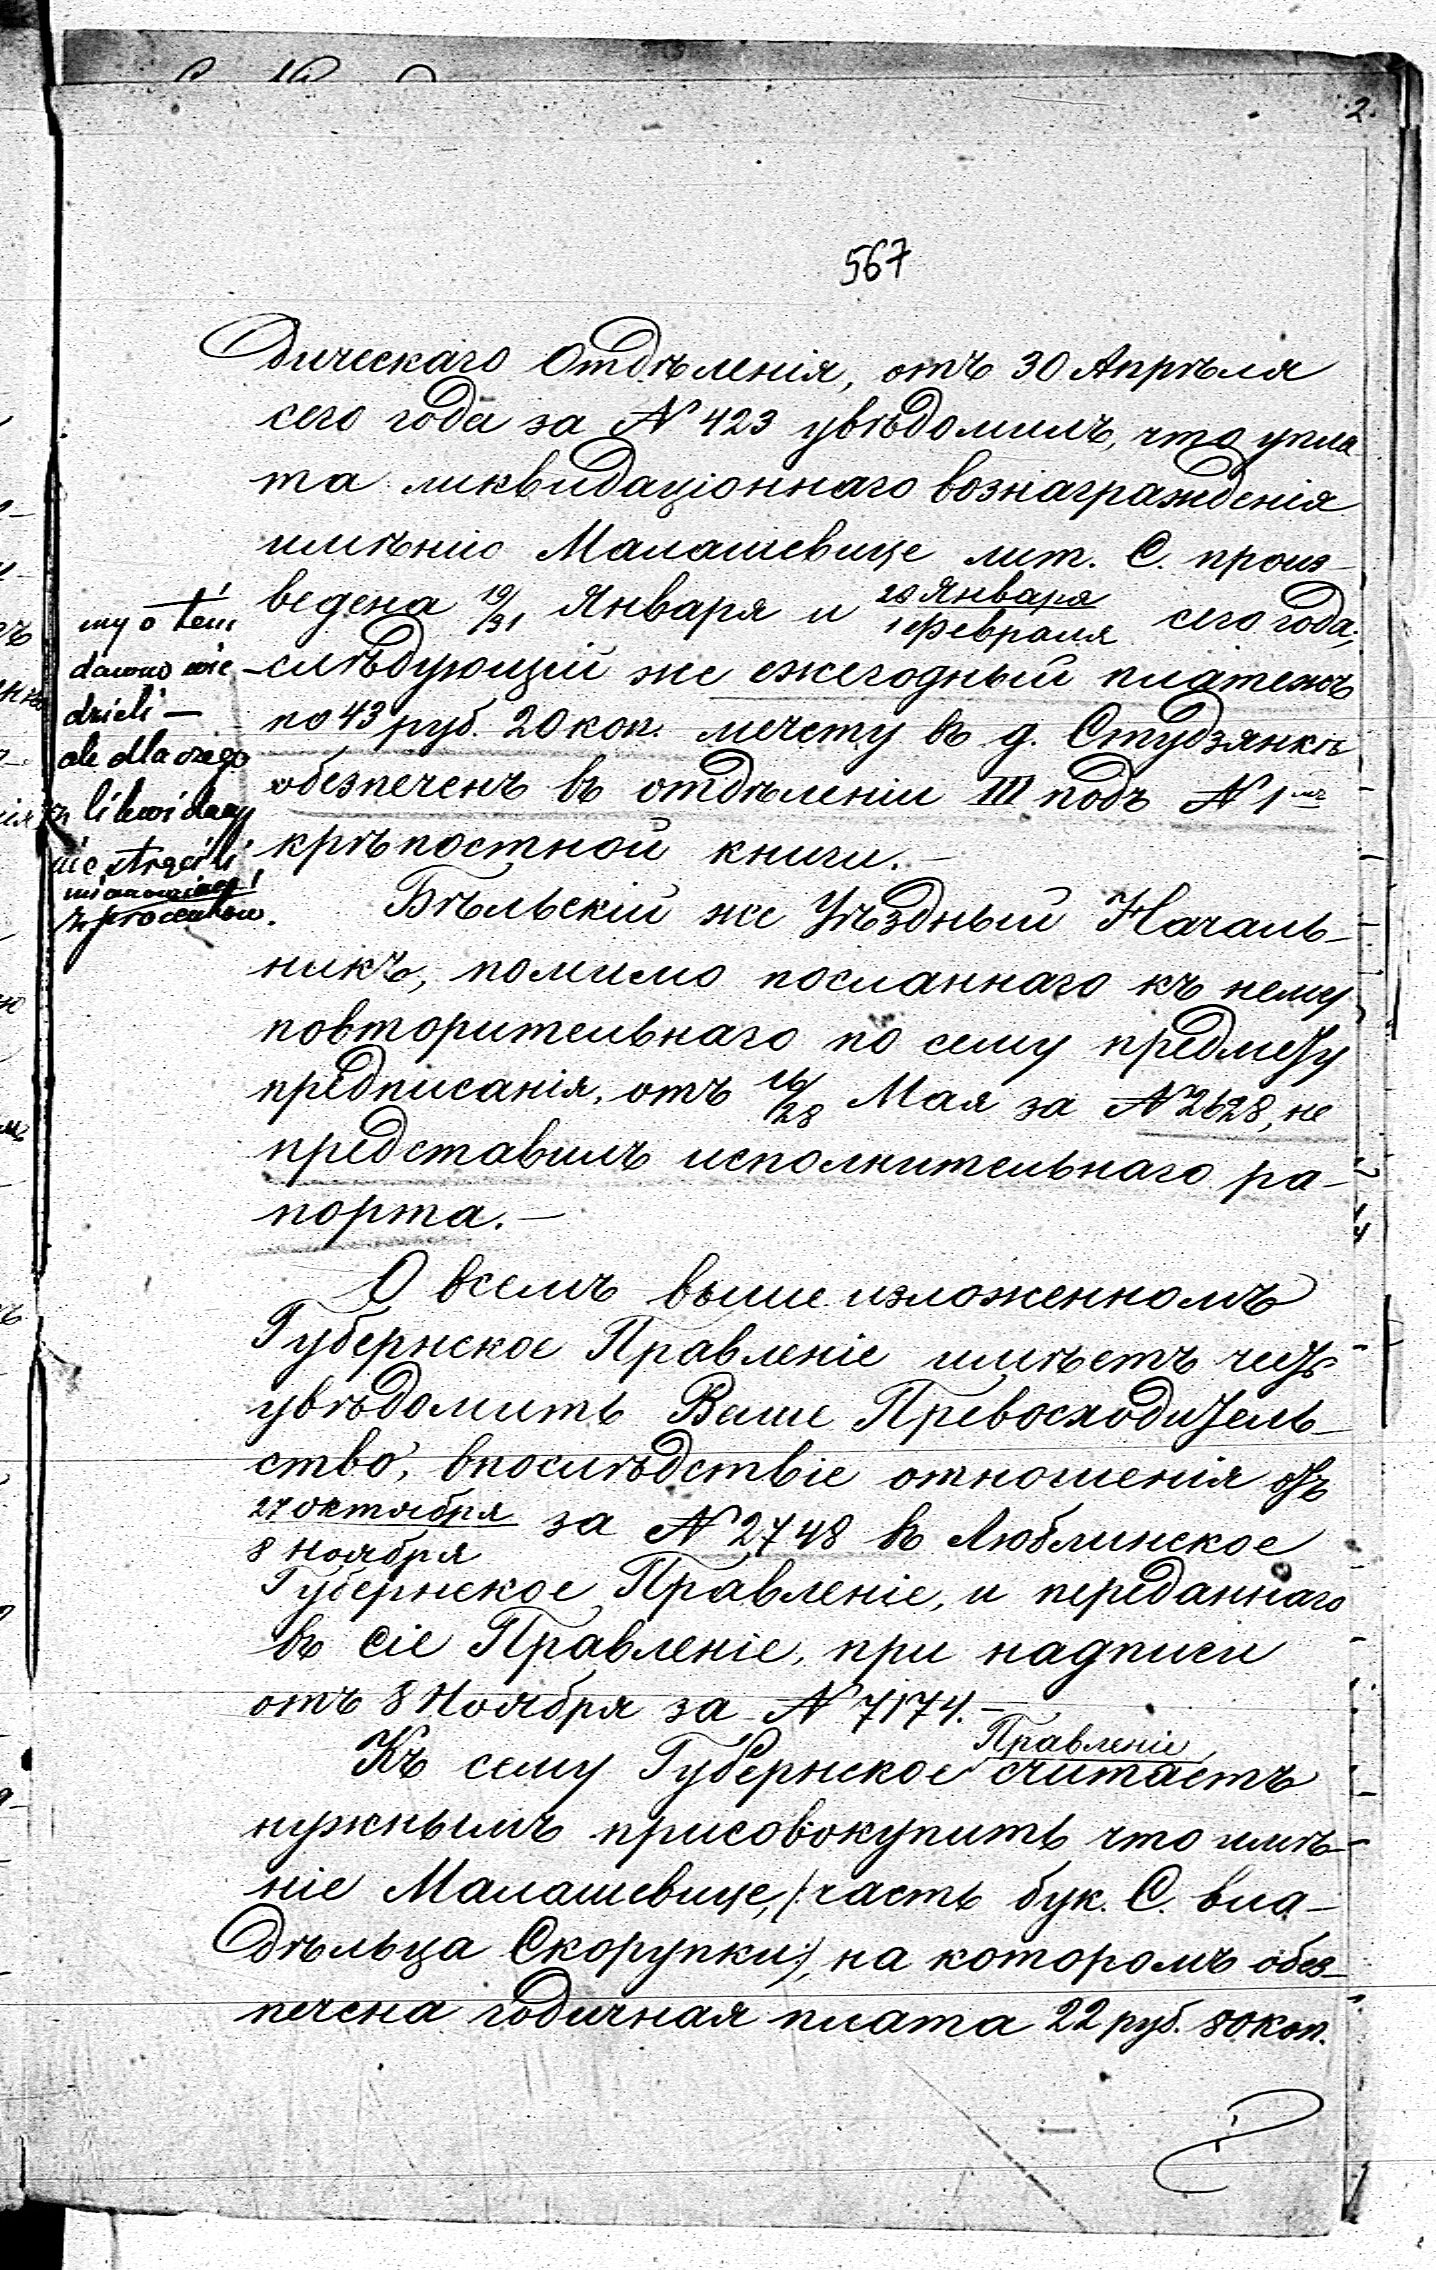 2.
567
дическаго Отдѣленія, отъ 30 Апрѣля
сего года за № 423 увѣдомилъ, что упла
та ликвидаціоннаго вознагражденія
имѣнію Малашевице лит. С. произ-
ведена 19/31 Января и 20 Января / 1 Февраля сего года;
слѣдующій же ежегодный платежъ
по 43 руб. 20 коп. мечету въ д. Студзянкѣ
обезпеченъ въ отдѣленіи III подъ № 1мъ
крѣпостной книги.-
my o tem
dawno wie-
dzieli -
ale dlaczego
z likwidacyi
nie strącili
z procentow.
Бѣльскій же Уѣздный Началь-
никъ, помимо посланнаго къ нему
повторительнаго по сему предмету
предписанія, отъ 16/28 Мая за № 2628, не
представилъ исполнительнаго ра-
порта.-
О всемъ выше изложенномъ
Губернское Правленіе имѣетъ честь
увѣдомить Ваше Превосходитель-
ство, впослѣдствіе отношенія отъ
27 Октября / 8 Ноября за № 2748 въ Люблинское
Губернское Правленіе, и переданнаго
въ сіе Правленіе, при надписи
отъ 8 Ноября за № 7174.-
Къ сему Губернское Правленіе считаетъ
нужнымъ присовокупить что имѣ-
ніе Малашевице, /:часть бук. С. вла-
дѣльца Скорупки:/, на которомъ обез-
печена годичная плата 22 руб. 80 коп.